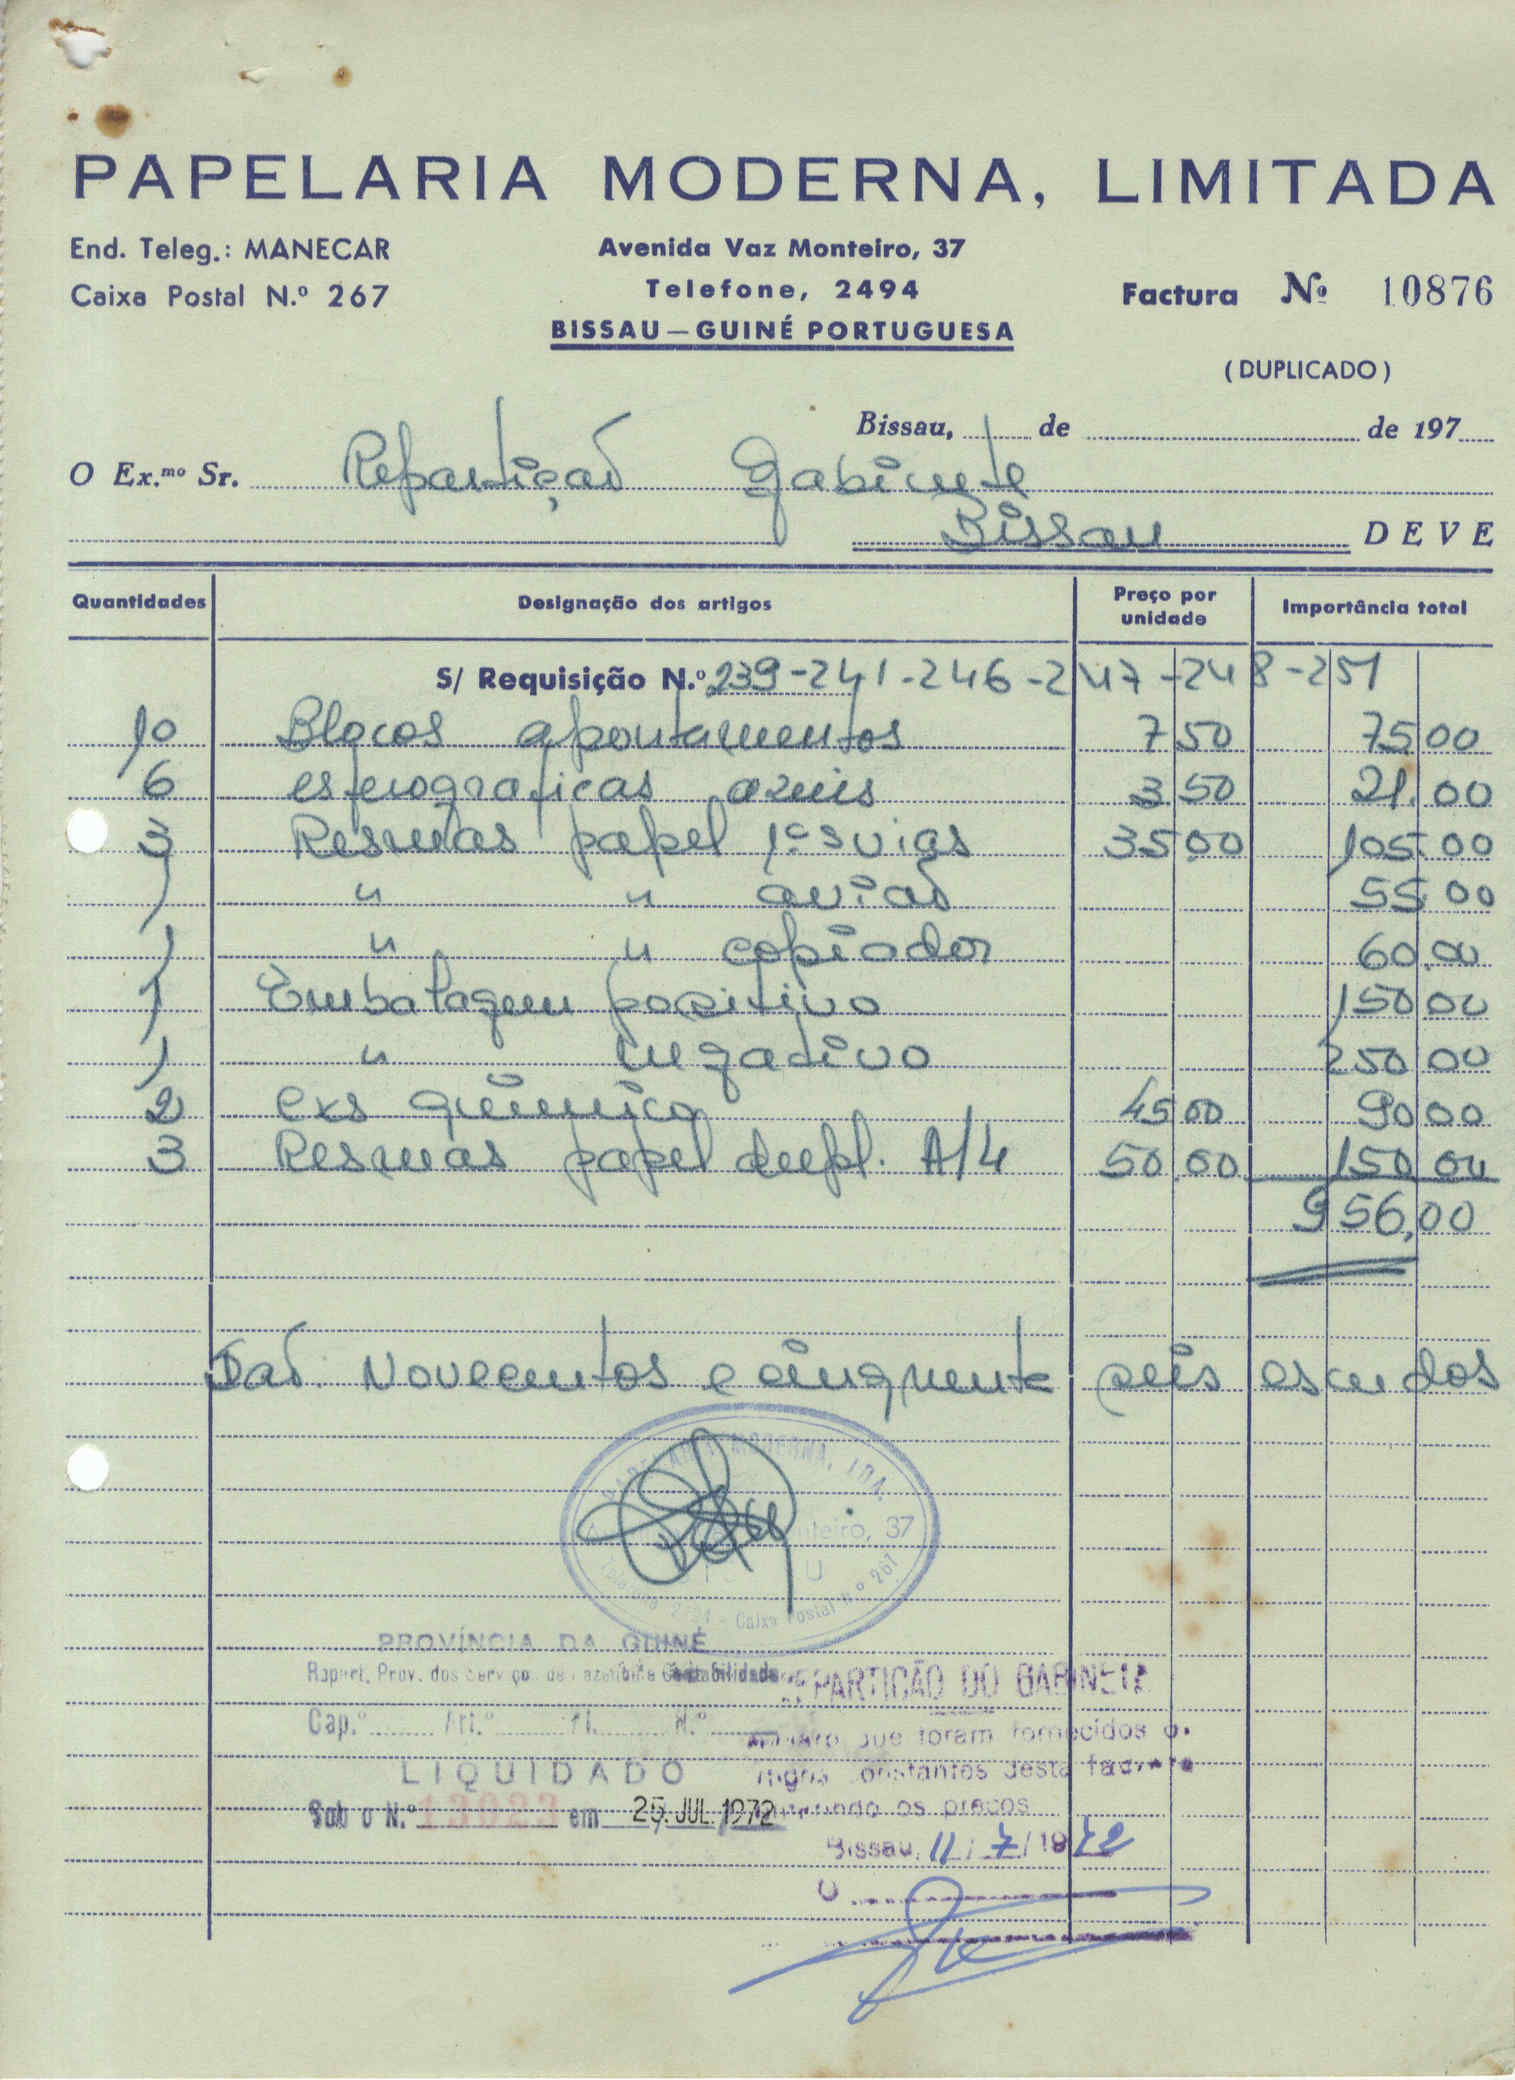 PAPELARIA MODERNA, LIMITADA
End. Teleg.: MANECAR
Avenida Vaz Monteiro, 37
Caixa Postal N.º 267
Telefone, 2494
Factura Nº 10876
BISSAU — GUINÉ PORTUGUESA
(DUPLICADO)
Bissau, de de 197
O Ex.mo Sr. Repartição Gabinete
Bissau DEVE
Quantidades Designação dos artigos Preço por unidade Importância total
S/ Requisição N.º 239-241-246-247-248-251
10 Blocos apontamentos 7 50 75 00
6 esferograficas azuis 3 50 21.00
3 Resmas papel 1ªs vias 35 00 105.00
1 " " avião 55 00
1 " " copiador 60.00
1 Embalagem positivo 150 00
1 " negativo 250 00
2 exs quimico 45 00 90 00
3 Resmas papel dupl. A/4 50.00 150 00
956,00
São. Novecentos e cinquenta seis escudos
PAPELARIA MODERNA, LDA.
Monteiro, 37
Telefone 2494 - Caixa Postal n.º 267
PROVÍNCIA DA GUINÉ
Repart. Prov. dos Serviços de Fazenda e Contabilidade
REPARTIÇÃO DO GABINETE
Cap.º Art.º N.º
que foram fornecidos o.
LIQUIDADO
constantes desta factura
Sob o N.º 13023 em 25. JUL. 1972
os preços
Bissau, 11/7/1972
O